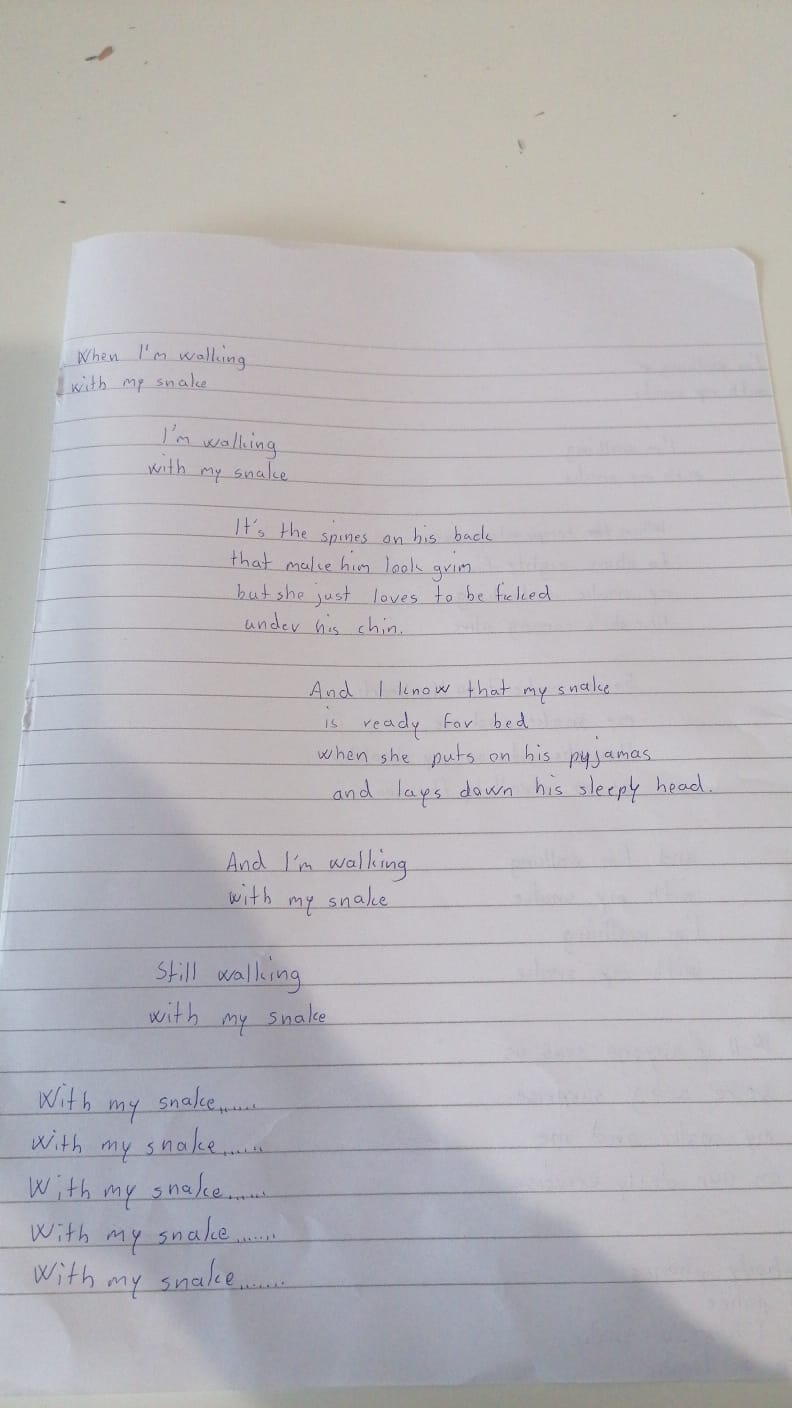 When I'm walking
with my snake
I'm walking
with my snake
It's the spines on his back
that make him look grim
but she just loves to be ticked
under his chin.
And I know that my snake
is ready for bed
when she puts on his pyjamas
and lays down his sleepy head.
And I'm walking
with my snake
Still walking
with my snake
With my snake.......
With my snake.......
With my snake.......
With my snake.......
With my snake.......